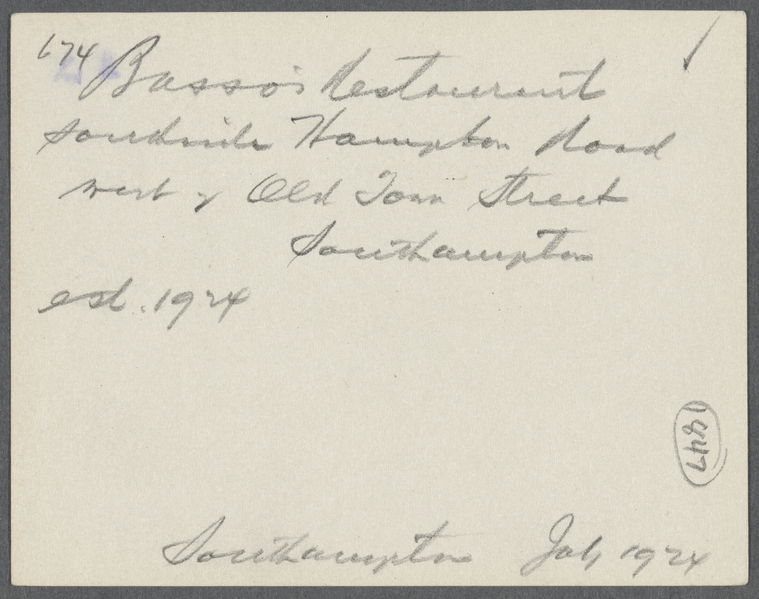 674 Basso's Restaurant
southside Hampton Road
west of Old Town Street
Southampton
est. 1924
1847
Southampton July 1924